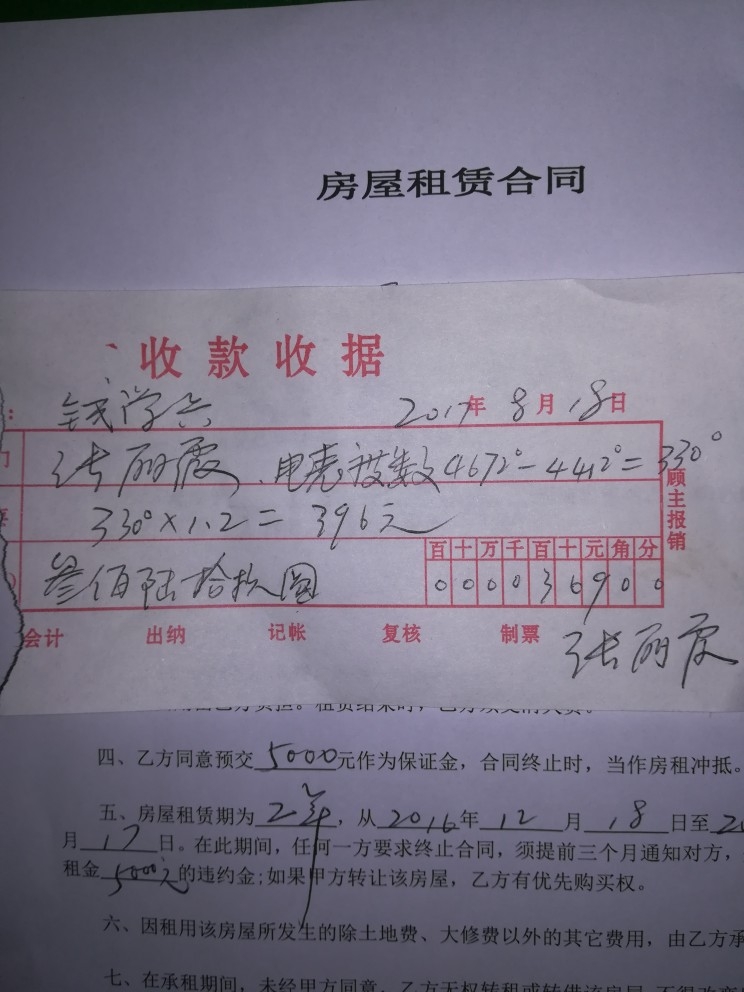 房屋租赁合同
收款收据
: 钱学兵 2017年8月18日
张丽霞、电表度数4672°-4412°=330°
330°×1.2=396元
顾主报销
百十万千百十元角分
叁佰陆拾玖圆 000036900
会计 出纳 记帐 复核 制票 张丽霞
四、乙方同意预交5000元作为保证金，合同终止时，当作房租冲抵。
五、房屋租赁期为2年，从2016年12月18日至20
月17日。在此期间，任何一方要求终止合同，须提前三个月通知对方，
租金5000元的违约金;如果甲方转让该房屋，乙方有优先购买权。
六、因租用该房屋所发生的除土地费、大修费以外的其它费用，由乙方承
七、在承租期间，未经甲方同意，乙方无权转租或转借该房屋